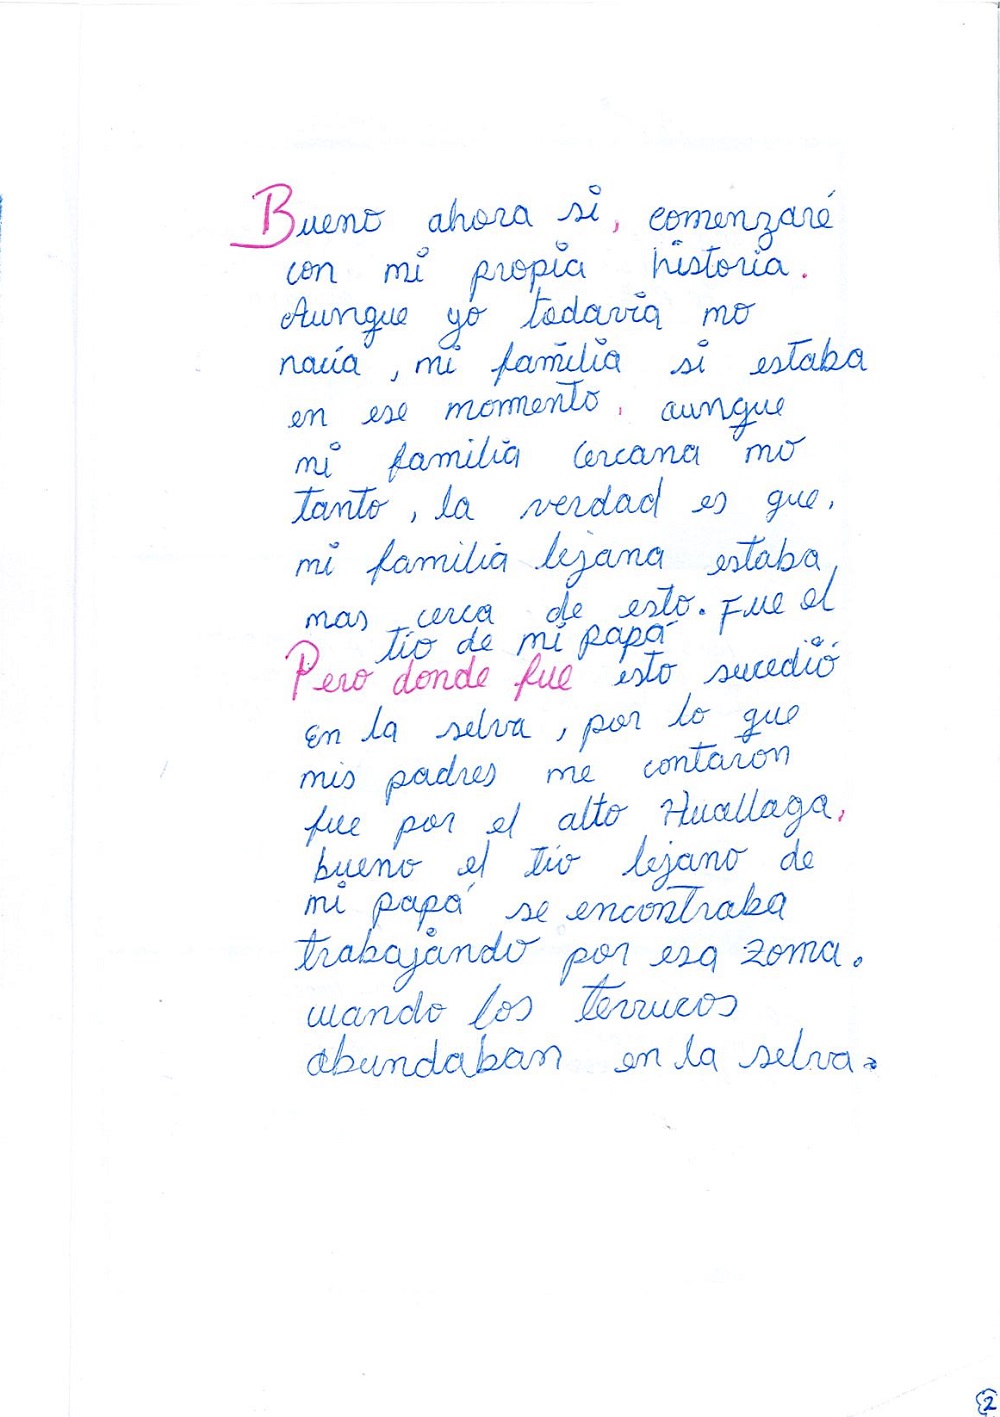 Bueno ahora si, comenzaré
con mi propia historia.
Aunque yo todavía no
nacía, mi familia si estaba
en ese momento, aunque
mi familia cercana no
tanto, la verdad es que,
mi familia lejana estaba,
mas cerca de esto. Fue el
tío de mi papá
Pero donde fue esto sucedió
En la selva, por lo que
mis padres me contaron
fue por el alto Huallaga,
bueno el tío lejano de
mi papá se encontraba
trabajando por esa zona.
cuando los terrucos
abundaban en la selva.
2